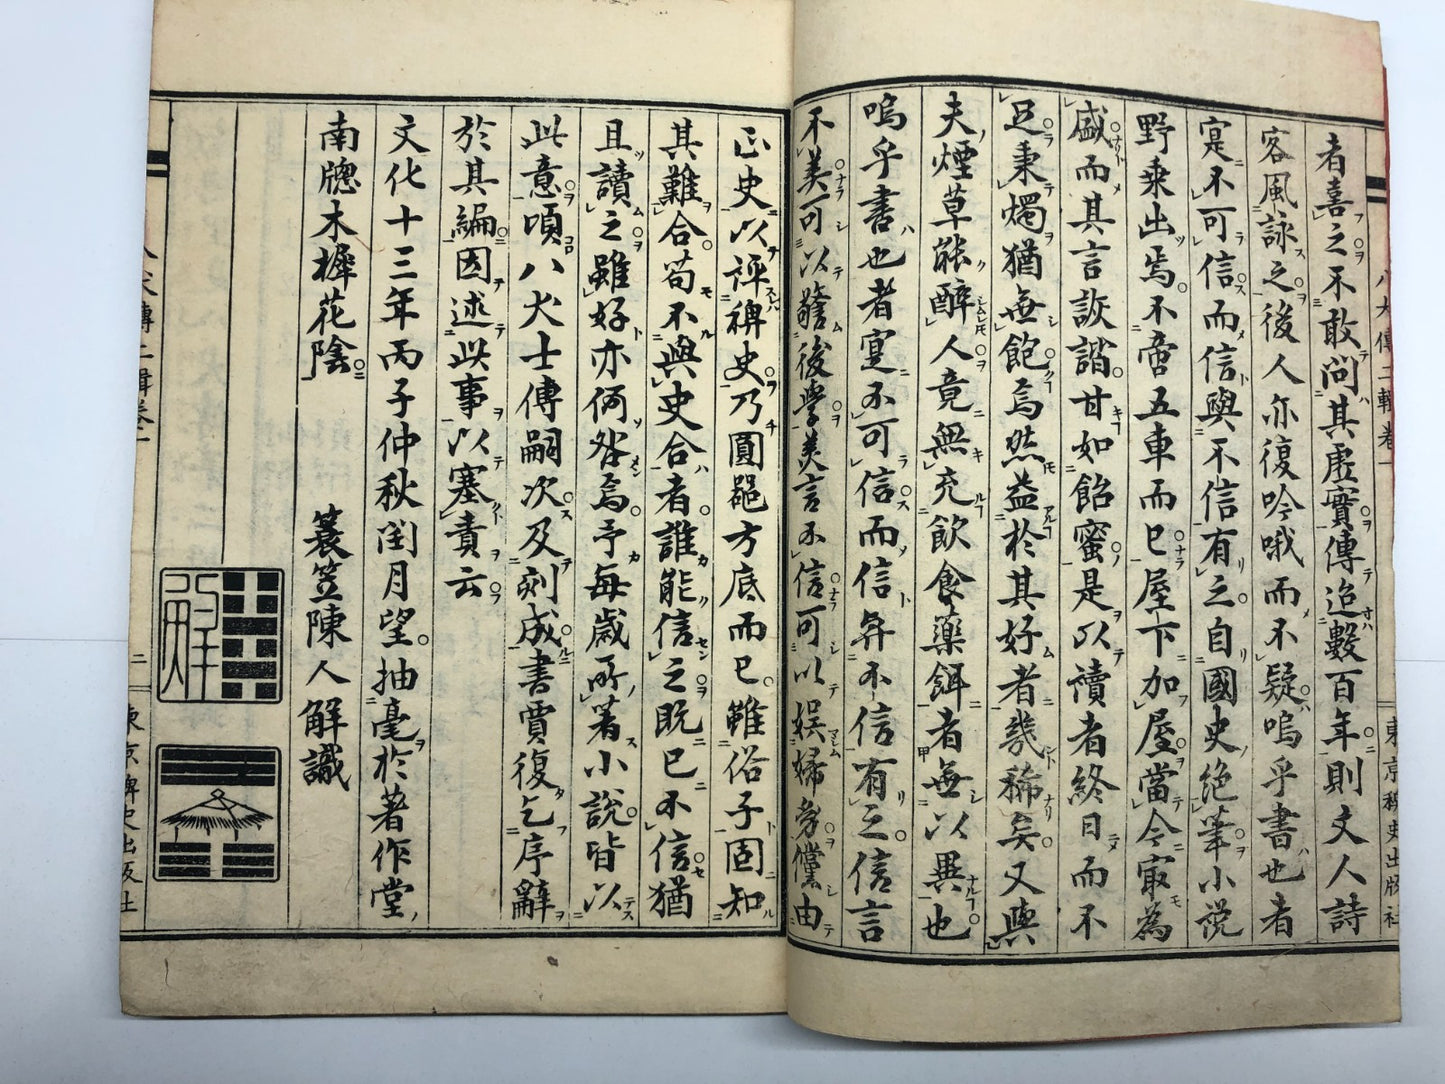 者喜之不敢問其虛實傳迨數百年則文人詩
客風詠之後人亦復吟哦而不疑嗚乎書也者
寔不可信而信與不信有之自國史絕筆小説
野乗出焉不啻五車而已屋下加屋當今寂為
盛而其言詼謔甘如飴蜜是以讀者終日而不
足秉燭猶無飽焉然益於其好者幾稀矣又與
夫煙草能醉人竟無充飲食藥餌者無以異也
嗚乎書也者寔不可信而信與不信有之信言
不美可以警後學美言不信可以娯婦幼儻由
正史以評稗史乃圓器方底而已雖俗子固知
其難合苟不與史合者誰能信之既已不信猶
且讀之雖好亦何咎焉予毎歳所著小説皆以
此意頃八犬士傳嗣次及刻成書賈復乞序辭
於其編因述此事以塞責云
文化十三年丙子仲秋閏月望抽毫於著作堂
南牕木樨花陰
簑笠陳人解識
八犬傳二輯卷一
東京稗史出版社
八犬傳二輯卷一
二
東京稗史出版社
解